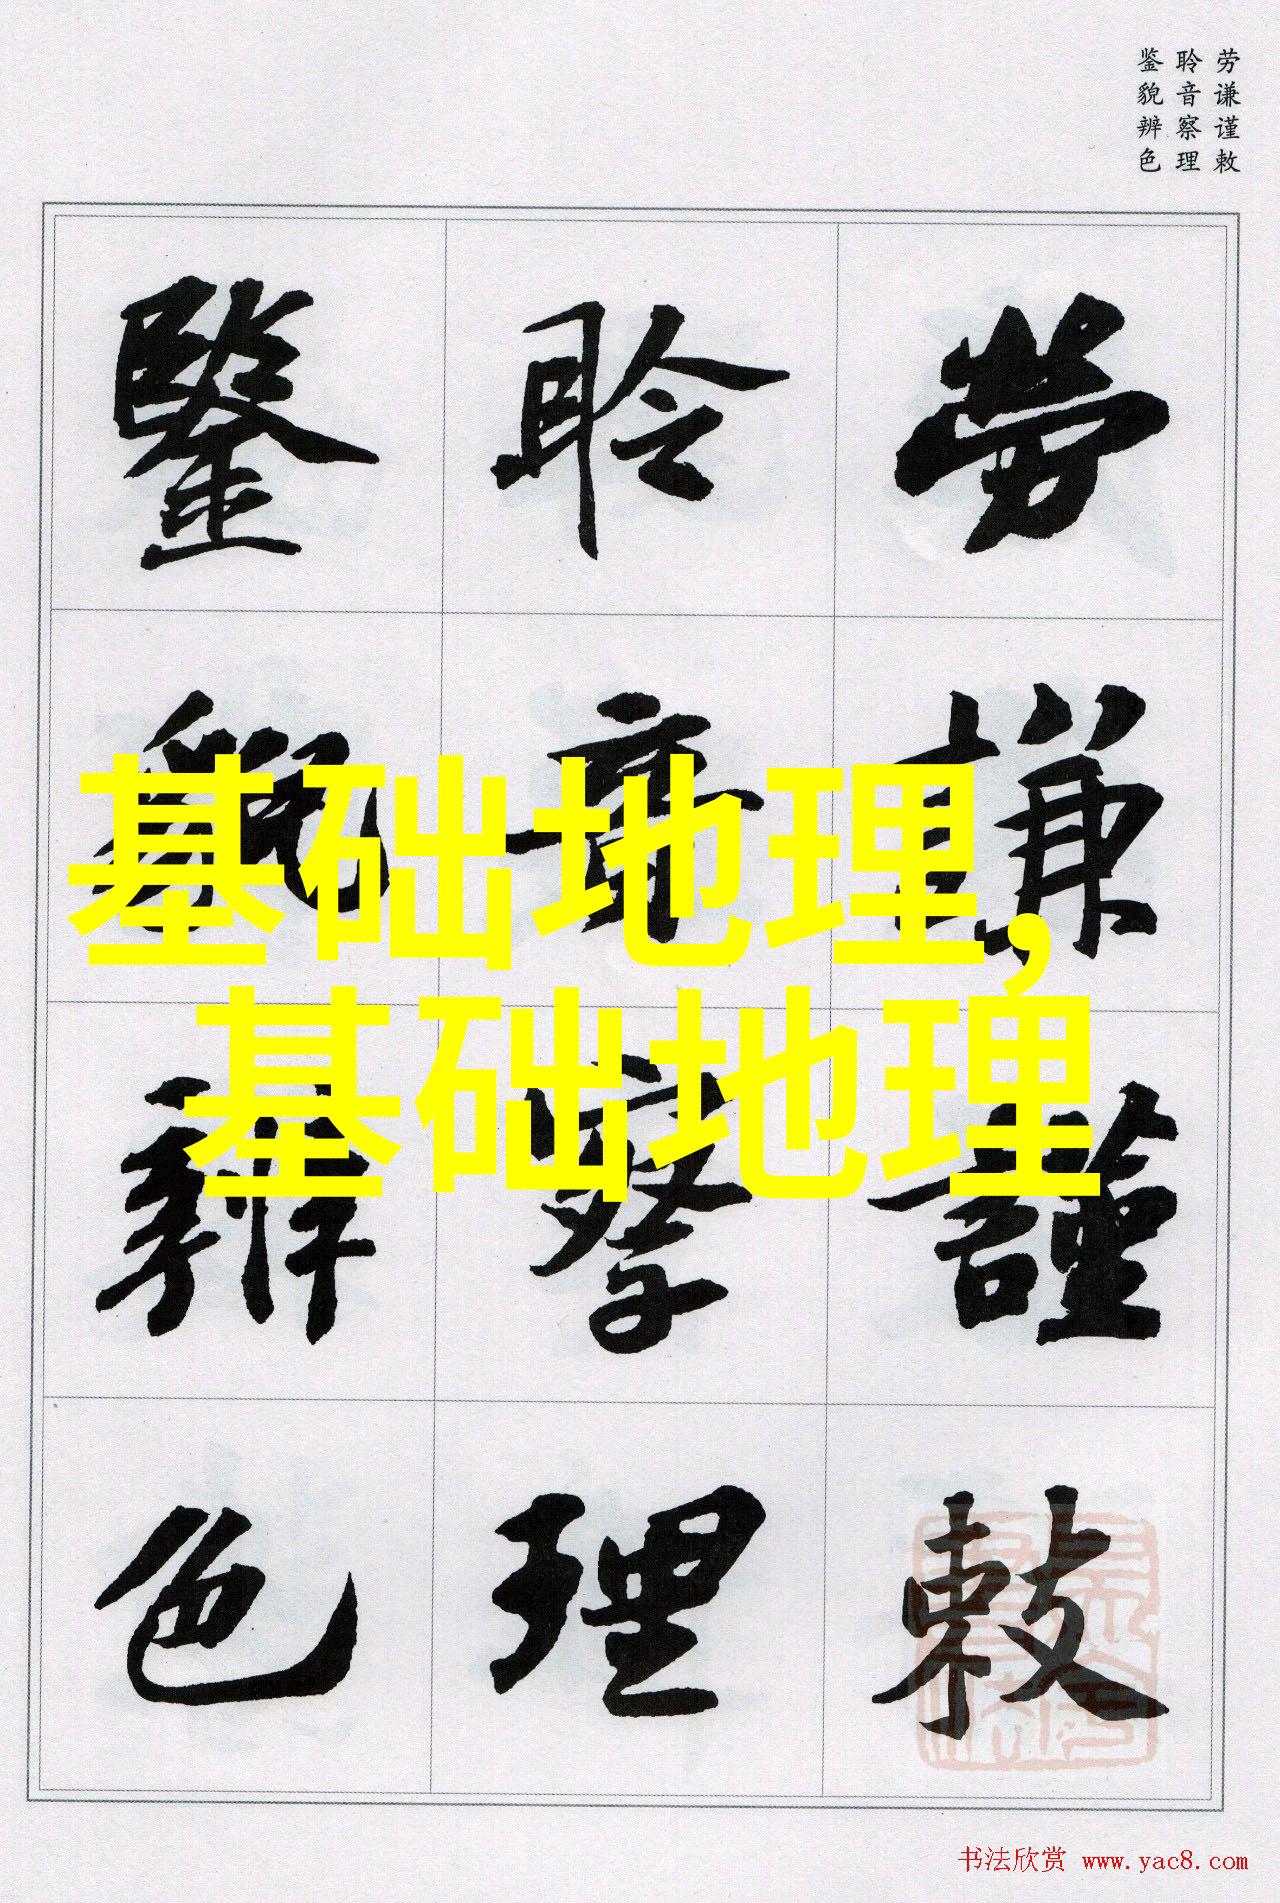 劳谦谨敕
聆音察理
鉴貌辨色
勞
謙
謹
敕
聆
音
察
理
鑒
貌
辨
色
基础地理,
基础地理
书法欣赏 www.yac8.com